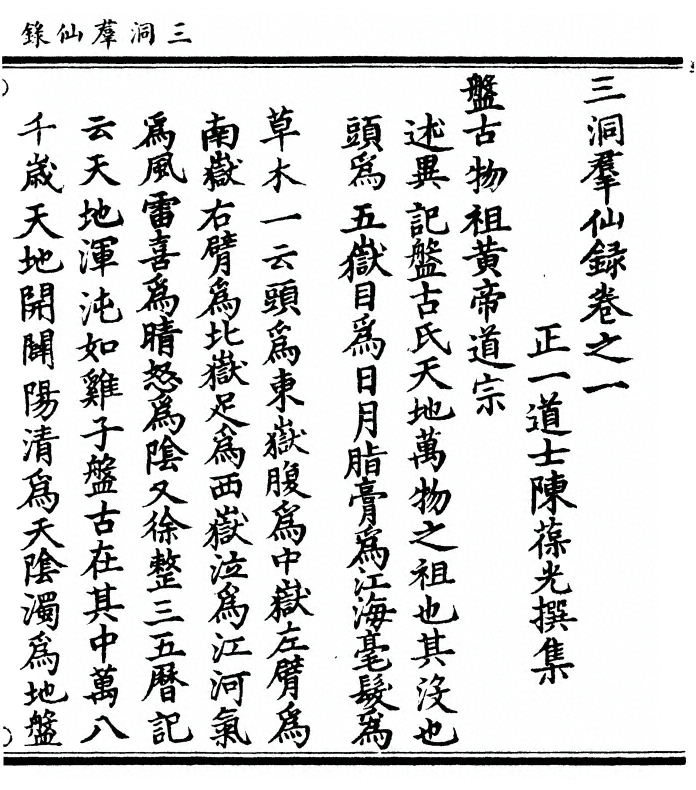 三洞羣仙錄
三洞羣仙録卷之一
正一道士陳葆光撰集
盤古物祖黃帝道宗
述異記盤古氏天地萬物之祖也其沒也
頭爲五嶽目爲日月脂膏爲江海毫髮爲
草木一云頭爲東嶽腹爲中嶽左臂爲
南嶽右臂爲北嶽足爲西嶽泣爲江河氣
爲風雷喜爲晴怒爲陰又徐整三五曆記
云天地渾沌如雞子盤古在其中萬八
千歲天地開闢陽清爲天陰濁爲地盤